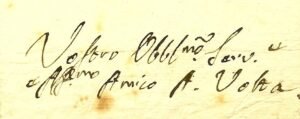 Vostro Obblmo Serv.e
e Affmo Amico A. Volta.